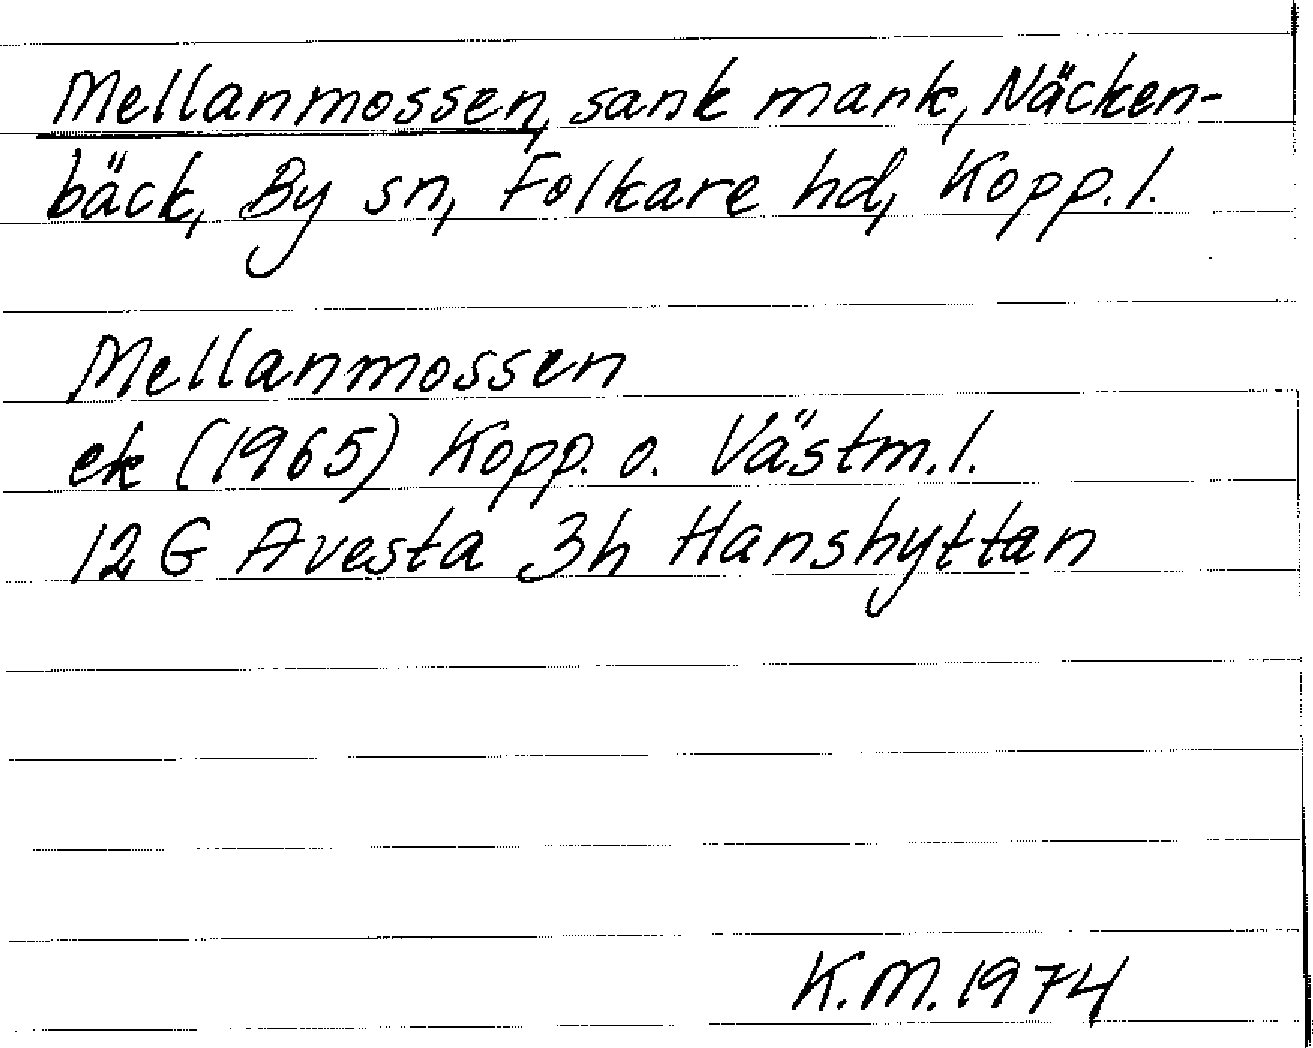 Mellanmossen, sank mark, Näcken-
bäck, By sn, Folkare hd, Kopp. l.
Mellanmossen
ek (1965) Kopp. o. Västm. l.
12 G Avesta 3h Hanshyttan
K.M. 1974